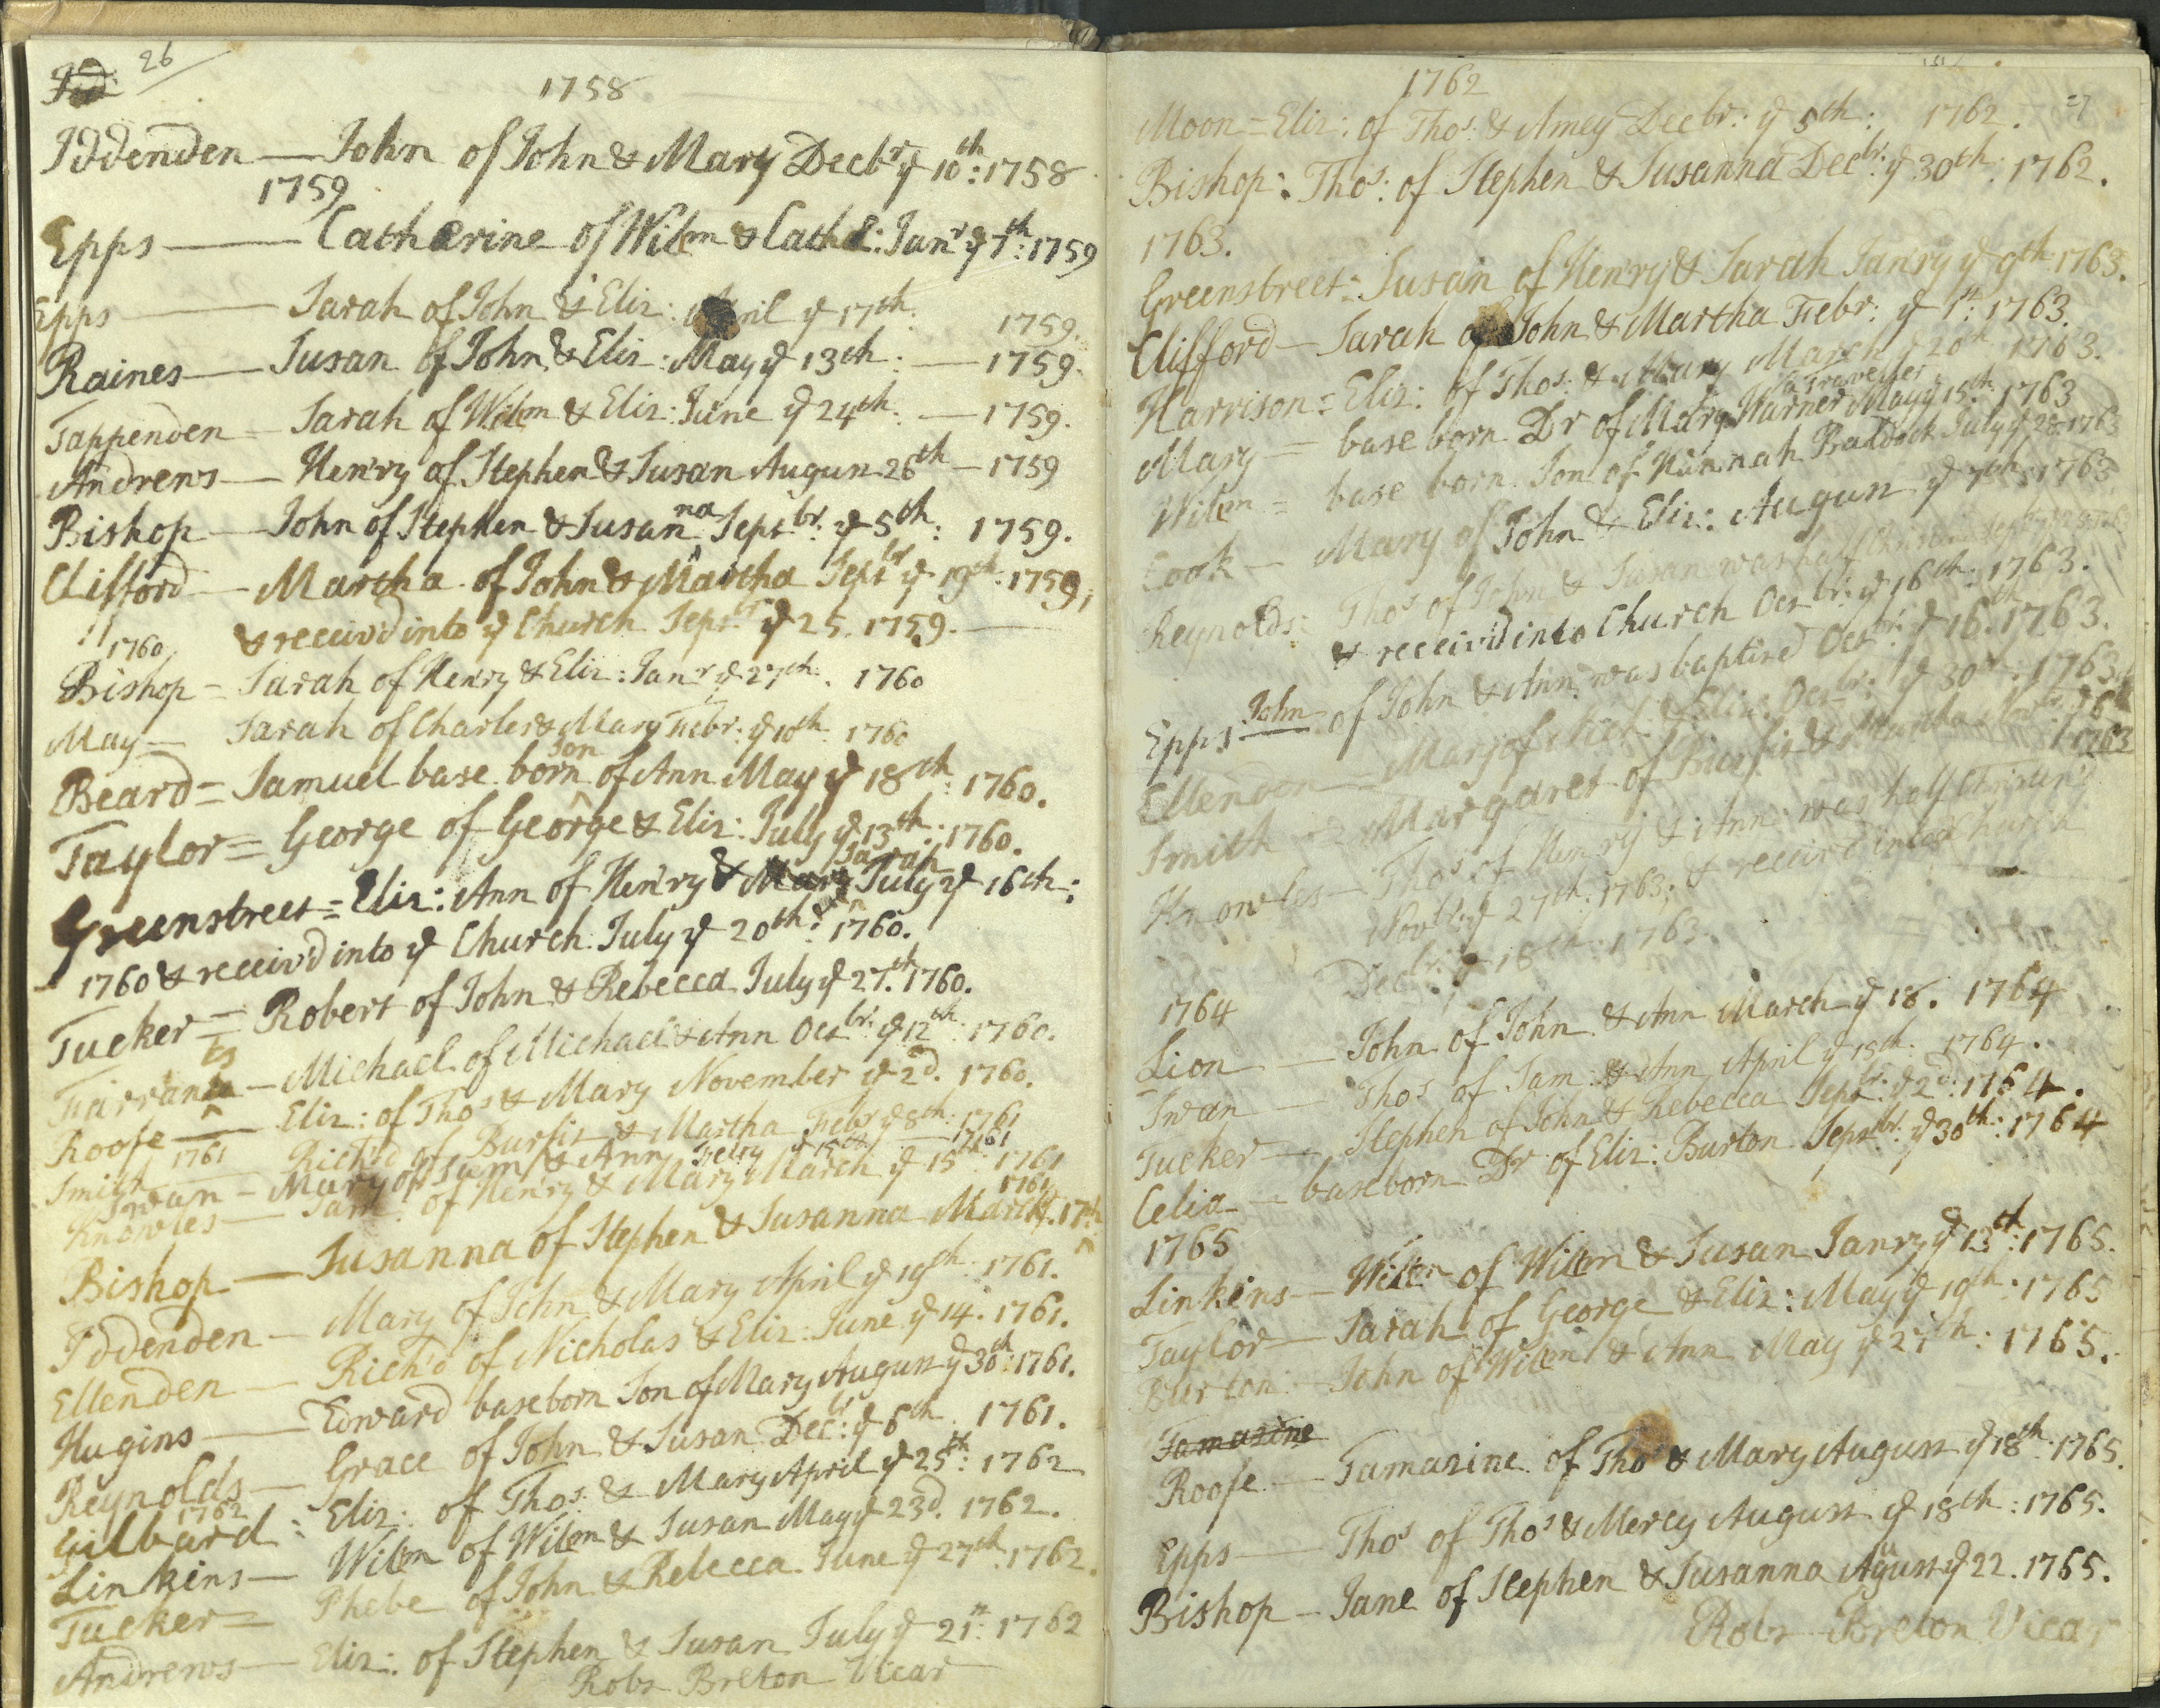 26
1758
Iddenden — John of John & Mary Decbr ye 10th: 1758
1759
Epps — Catharine of Willm & Cathe: Janr ye 7th: 1759
Epps — Sarah of John & Eliz: April ye 17th: 1759.
Raines — Susan of John & Eliz: May ye 13th: — 1759.
Tappenden — Sarah of Willm & Eliz: June ye 24th: — 1759.
Andrews — Henry of Stephen & Susan August 26th — 1759
Bishop — John of Stephen & Susanna Septbr: ye 5th: 1759.
Clifford — Martha of John & Martha Septbr ye 19th: 1759,
& receiv'd into ye Church Septbr ye 25. 1759. —
1760
Bishop = Sarah of Henry & Eliz: Janr ye 27th: 1760
May — Sarah of Charles & Mary Febr: ye 10th 1760
Beard = Samuel base born son of Ann May ye 18th: 1760.
Taylor = George of George & Eliz: July ye 13th: 1760.
Greenstreet = Eliz: Ann of Henry & Mary Sarah July ye 16th:
1760 & receiv'd into ye Church July ye 20th: 1760.
Tucker = Robert of John & Rebecca July ye 27th. 1760.
Farrants — Michael of Michael & Ann Octbr: ye 12th: 1760.
Roofe — Eliz: of Thos & Mary November ye 2d. 1760.
1761
Smith — Rich'd of Burfit & Martha Febr ye 8th: 1761
Swan — Mary of Sam & Ann Febry ye 15th — 1761
Knowles — of Henry & Mary March ye 15th 1761
Bishop — Susanna of Stephen & Susanna March. 17th 1761
Iddenden — Mary of John & Mary April ye 19th: 1761.
Ellenden — Rich'd of Nicholas & Eliz: June ye 14: 1761.
Hugins — Edward baseborn Son of Mary August ye 30th: 1761.
Reynolds — Grace of John & Susan Decbr: ye 6th 1761.
1762
Gilbard: Eliz: of Thos: & Mary April ye 25th: 1762
Linkins — Willm of Willm & Susan May ye 23d. 1762.
Tucker = Phebe of John & Rebecca June ye 27th: 1762.
Andrews — Eliz: of Stephen & Susan July ye 21st: 1762
Robt Breton Vicar
1762
27
Moon = Eliz: of Thos: & Amey Decbr: ye 5th: 1762.
Bishop: Thos: of Stephen & Susanna Decbr: ye 30th: 1762.
1763.
Greenstreet: Susan of Henry & Sarah Janry ye 9th 1763.
Clifford — Sarah of John & Martha Febr: ye 1st: 1763.
Harrison: Eliz: of Thos: & Mary March ye 20th 1763.
a Traveller
Mary = base born Dr of Mary Warner May ye 15th: 1763
Willm = base born Son of Hannah Baldock July ye 28: 1763
Cook — Mary of John & Eliz: August ye 7th: 1763
Reynolds: Thos of John & Susan was half Christen'd
& receiv'd into Church Octbr: ye 16th: 1763.
Epps John of John & Ann was baptized Octbr: ye 16th. 1763.
Ellenden — Mary of Nich: & Eliz: Octbr: ye 30th: 1763.
Smith — Margaret of Burfit & Martha Novbr: ye 6th 1763
Knowles — Thos of Henry & Ann was half Christen'd
Novbr: ye 27th: 1763; & receiv'd into Church
Decbr: ye 18th: 1763.
1764
Lion — John of John & Ann March ye 18. 1764
Swan — Thos of Sam: & Ann April ye 15th: 1764.
Tucker — Stephen of John & Rebecca Septbr: ye 2d: 1764.
Celia — baseborn Dr of Eliz: Burton Septbr: ye 30th: 1764
1765
Linkins — Willm of Willm & Susan Janry ye 13th: 1765.
Taylor — Sarah of George & Eliz: May ye 19th: 1765
Burton — John of Willm & Ann May ye 27th: 1765.
Tamazine
Roofe — Tamazine of Thos & Mary August ye 18th: 1765.
Epps — Thos of Thos & Mercy August ye 18th: 1765.
Bishop — Jane of Stephen & Susanna August ye 22. 1765.
Robt Breton Vicar